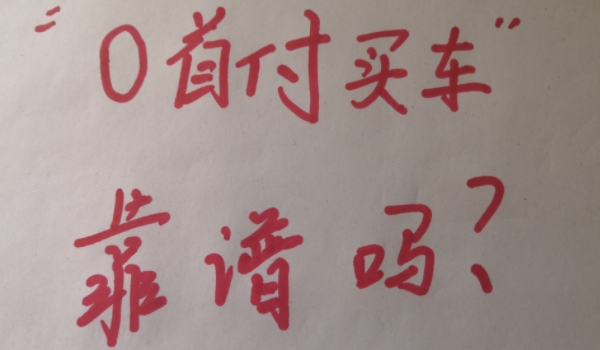 “0首付买车”
靠谱吗?